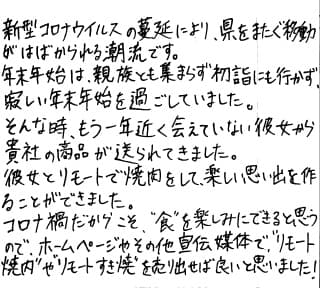 新型コロナウイルスの蔓延により、県をまたぐ移動
がはばかられる潮流です。
年末年始は、親族とも集まらず初詣にも行かず、
寂しい年末年始を過ごしていました。
そんな時、もう一年近く会えていない彼女から
貴社の商品が送られてきました。
彼女とリモートで焼肉をして、楽しい思い出を作
ることができました。
コロナ禍だからこそ、"食"を楽しみにできると思う
ので、ホームページやその他宣伝媒体で、"リモート
焼肉"や"リモートすき焼"を売り出せば良いと思いました!